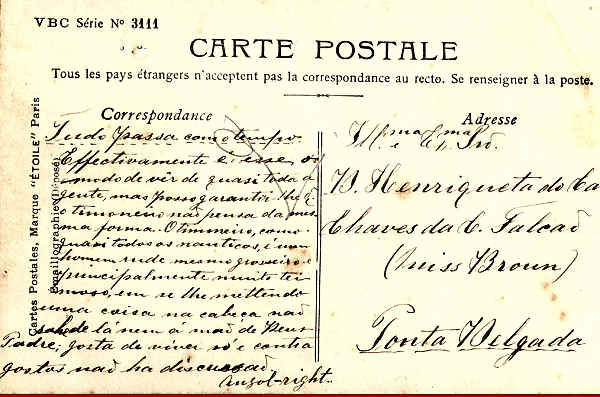 VBC Série Nº 3111
CARTE POSTALE
Tous les pays étrangers n'acceptent pas la correspondance au recto. Se renseigner à la poste.
Cartes Postales, Marque "ÉTOILE" Paris
Émaillographie (Déposé)
Correspondance
Tudo passa com o tempo
Effectivamente é esse o
modo de vêr de quasi toda a
gente, mas posso garantir-lhe q
o timoneiro não pensa da mes-
ma forma. O timoneiro, como
quasi todos os nauticos, é um
homem rude mesmo grosseiro e
principalmente muito tei-
moso, em se lhe mettendo
uma coisa na cabeça não
sahe de lá nem á mão de Deus
Padre; gosta de viver só e contra
gostos não ha discussão
Adresse
Ill.ma e Ex.ma Srª
D. Henriqueta do Ca
Chaves da C. Falcão
(Miss Broun)
Ponta Delgada